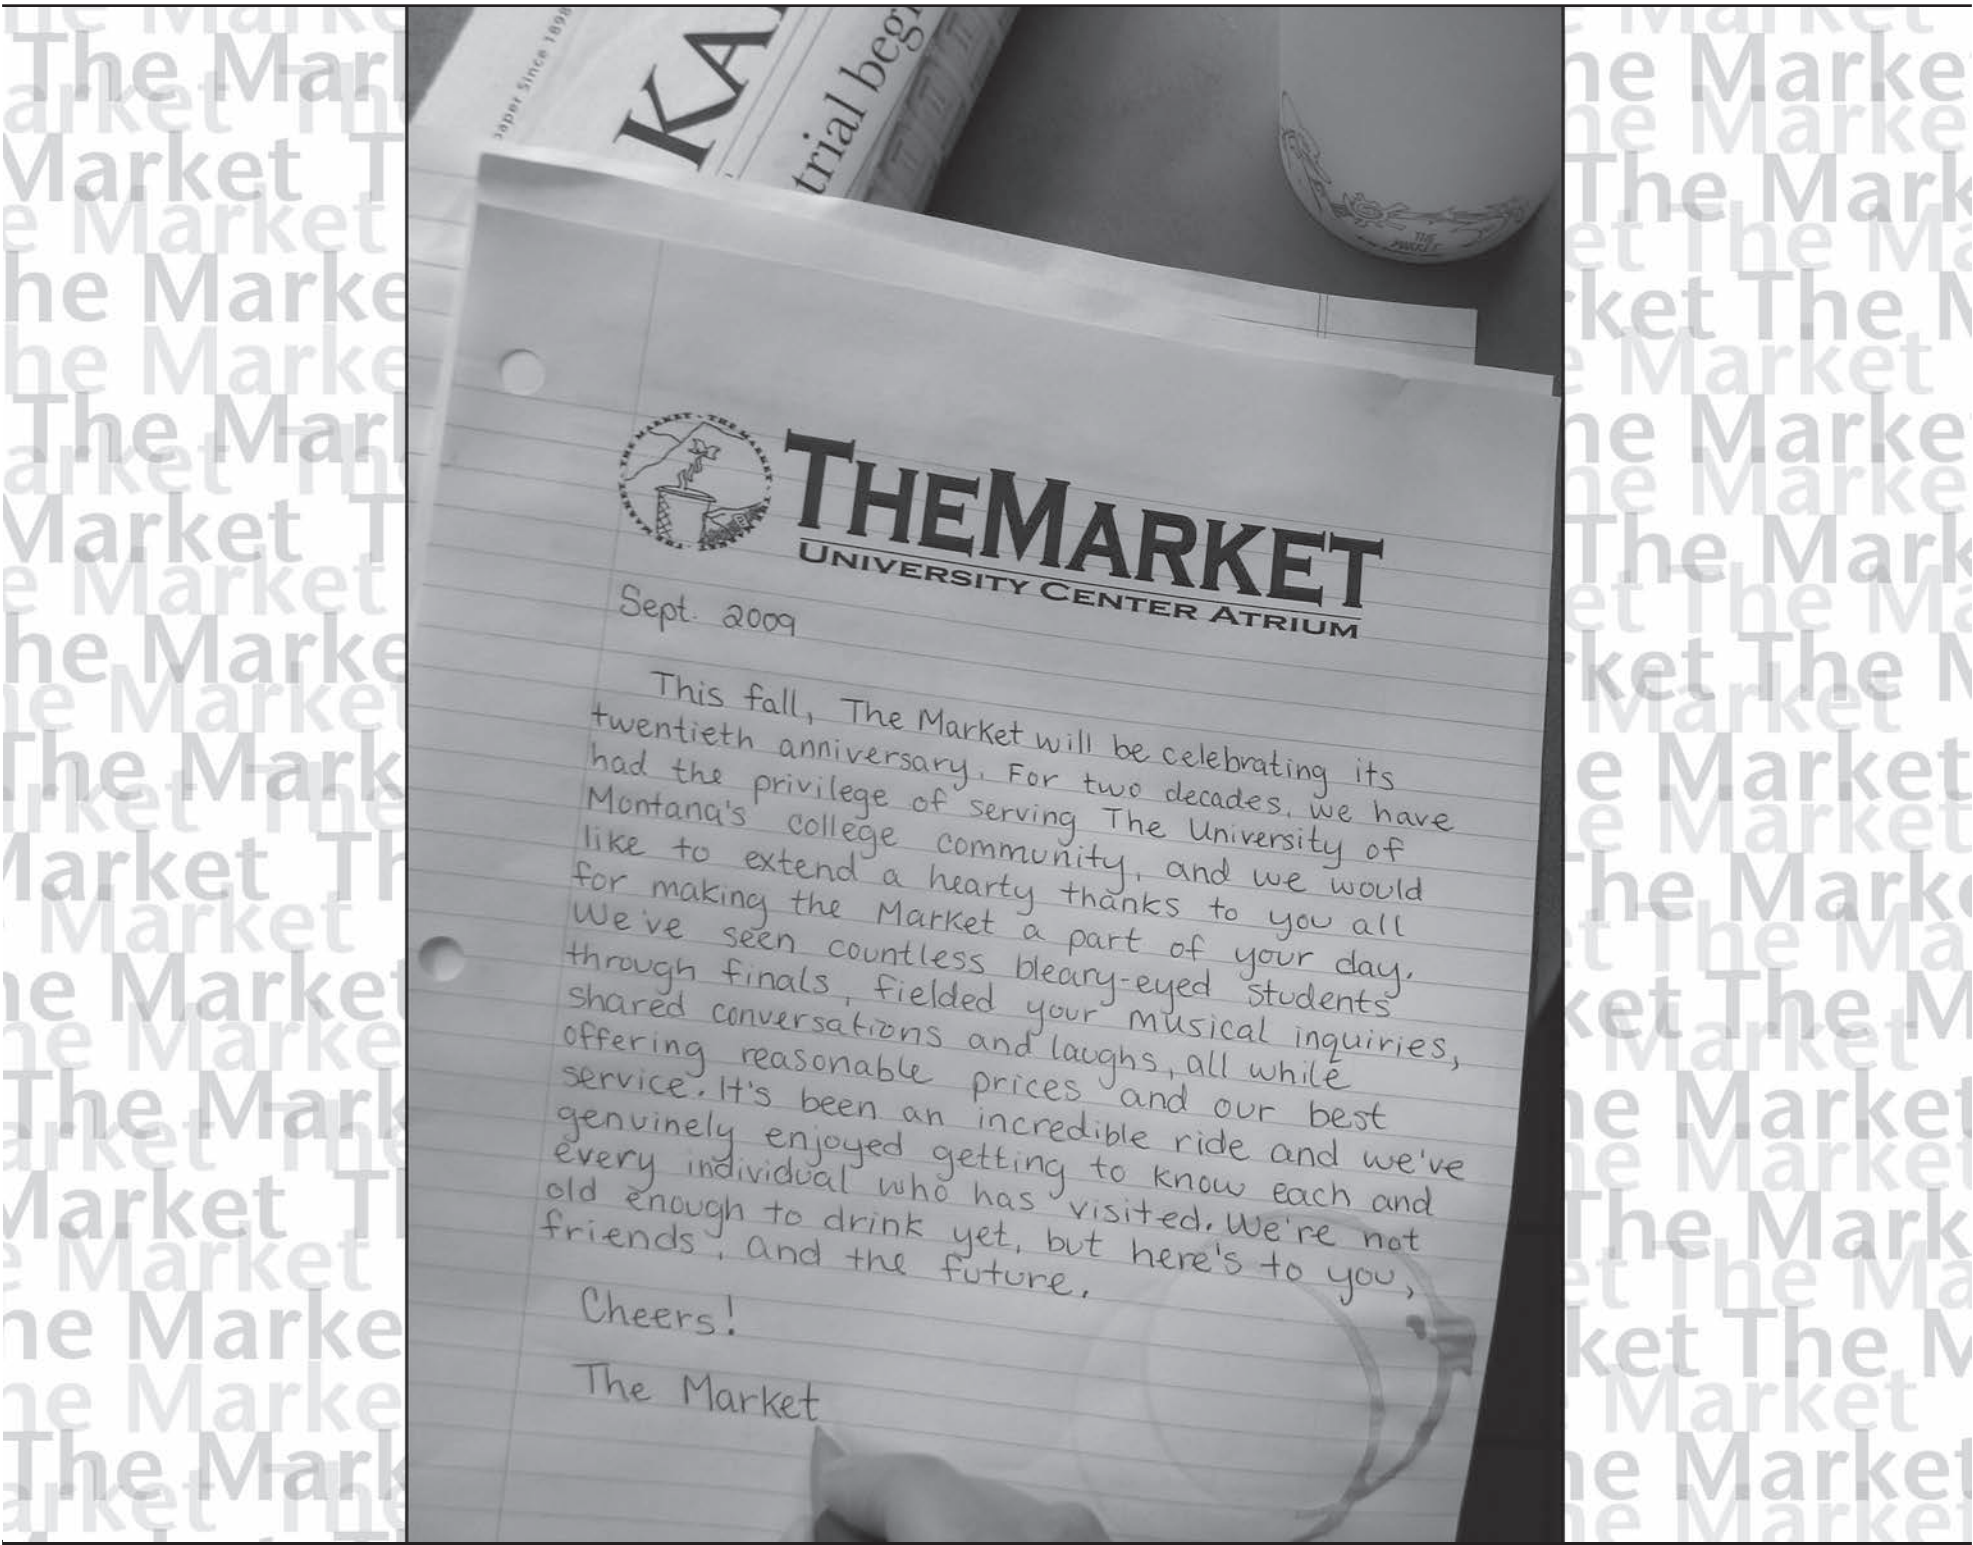 paper Since 1898
KA
trial beg
THE MARKET
THE MARKET · THE MARKET · THE MARKET · THE MARKET
THEMARKET
UNIVERSITY CENTER ATRIUM
Sept. 2009
This fall, The Market will be celebrating its
twentieth anniversary. For two decades, we have
had the privilege of serving The University of
Montana's college community, and we would
like to extend a hearty thanks to you all
for making the Market a part of your day.
We've seen countless bleary-eyed students
through finals, fielded your musical inquiries,
shared conversations and laughs, all while
offering reasonable prices and our best
service. It's been an incredible ride and we've
genuinely enjoyed getting to know each and
every individual who has visited. We're not
old enough to drink yet, but here's to you,
friends, and the future.
Cheers!
The Market